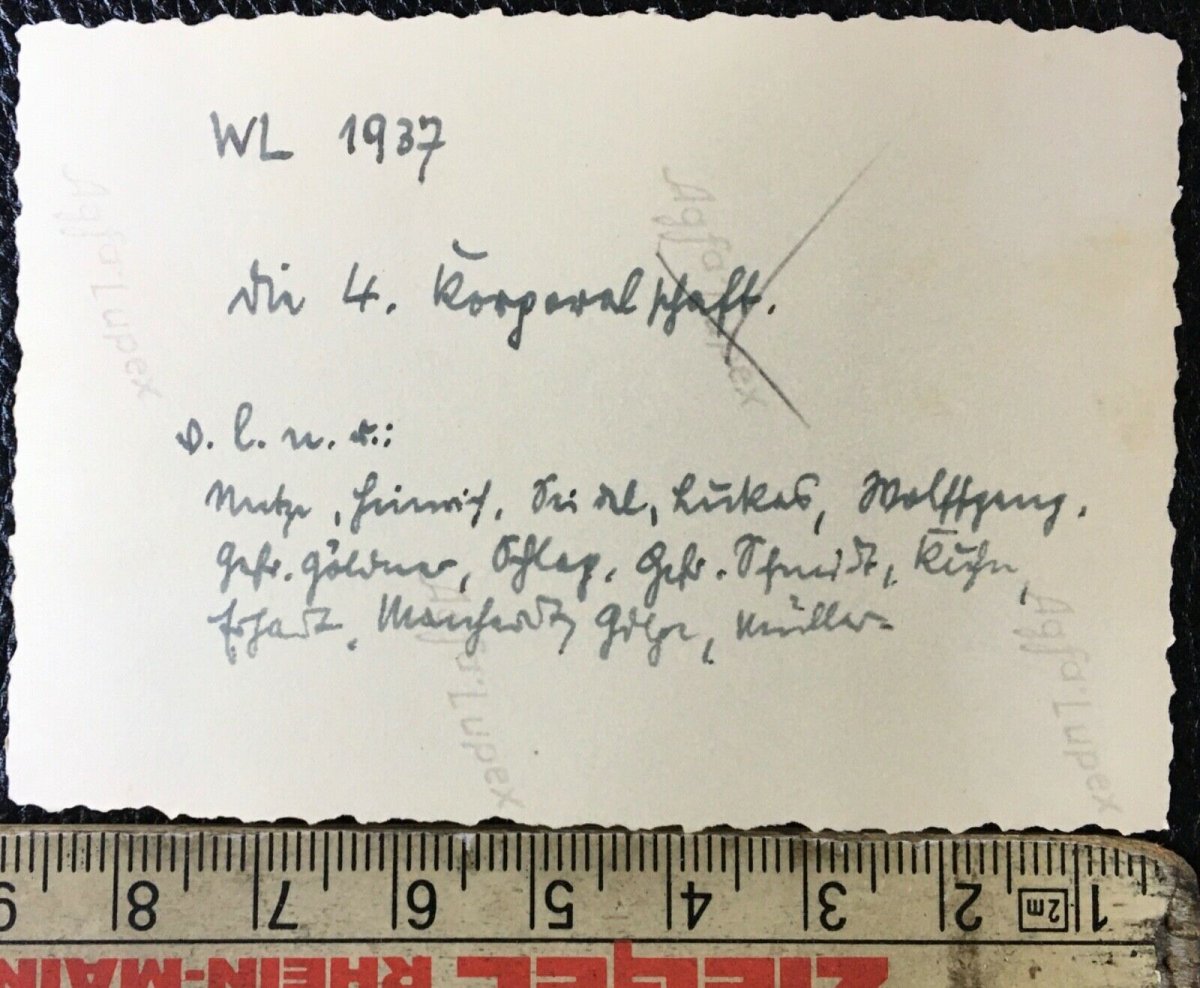 WL 1937
Die 4. Korporalschaft.
v. l. n. r.:
Heinrich, Seidel, Lukas, Wolffgang,
Gefr. Göldner, Schlag, Gefr. Schmidt, Kühn,
Erhardt, Müller
Agfa Lupex
Agfa Lupex
Agfa Lupex
Agfa Lupex
9 8 7 6 5 4 3 2 2m 1
ZIEGEL RHEIN-MAIN